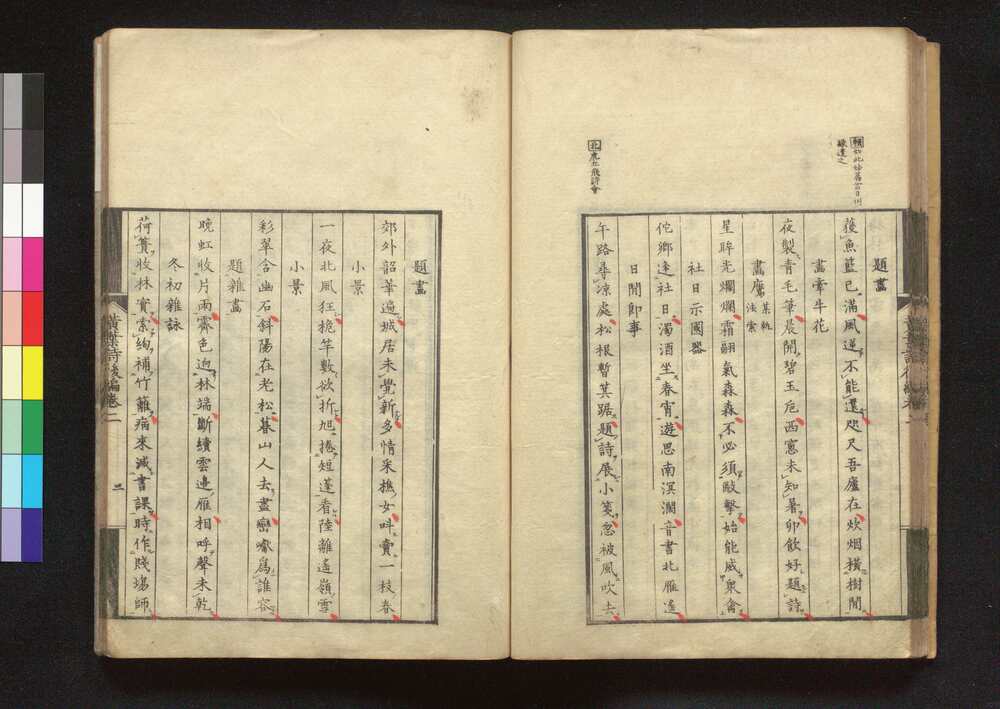 題畫
籃已滿風逆不能還咫尺吾廬在炊烟橫樹間
畫牽牛花
夜製青毛筆晨開碧玉卮西窻未知暑卯飲好題詩
畫鷹
星眸光爛爛霜翮氣森森不必須敺擊始能威衆禽
社日示國器
佗鄉逢社日濁酒坐春宵遊思南溟濶音書北雁遙
日間即事
午路尋涼處松根暫箕踞題詩展小箋忽被風吹去
題畫
郊外韶華遍城居未覺新多情采樵女叫賣一枝春
小景
一夜北風狂桅竿數欲折旭捲短蓬看陸離遙嶺雪
小景
彩翠含幽石斜陽在老松暮山人去盡巒爲誰容
題雜畫
晚虹收片雨霽色迥林端斷續雲邊雁相呼聲未乾
冬初雜詠
荷蕢收林實索綯補竹籬病來減書課時作賤場師
黃葉詩後編卷二
三